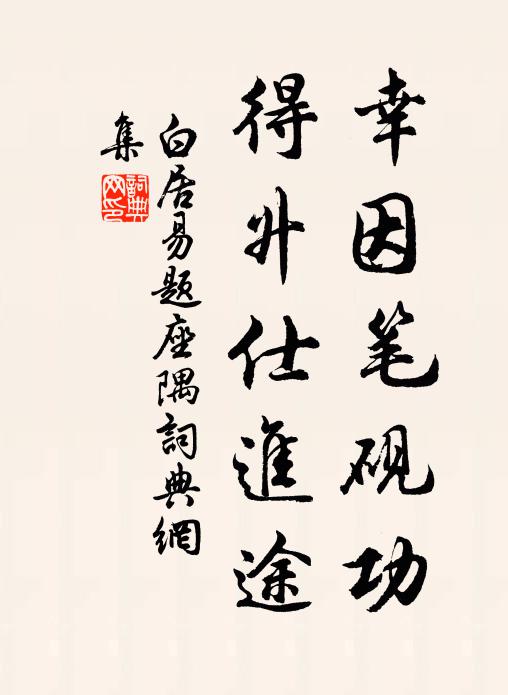 幸因笔砚功
得升仕進途
白居易題座隅詞典網
集
詞典网印